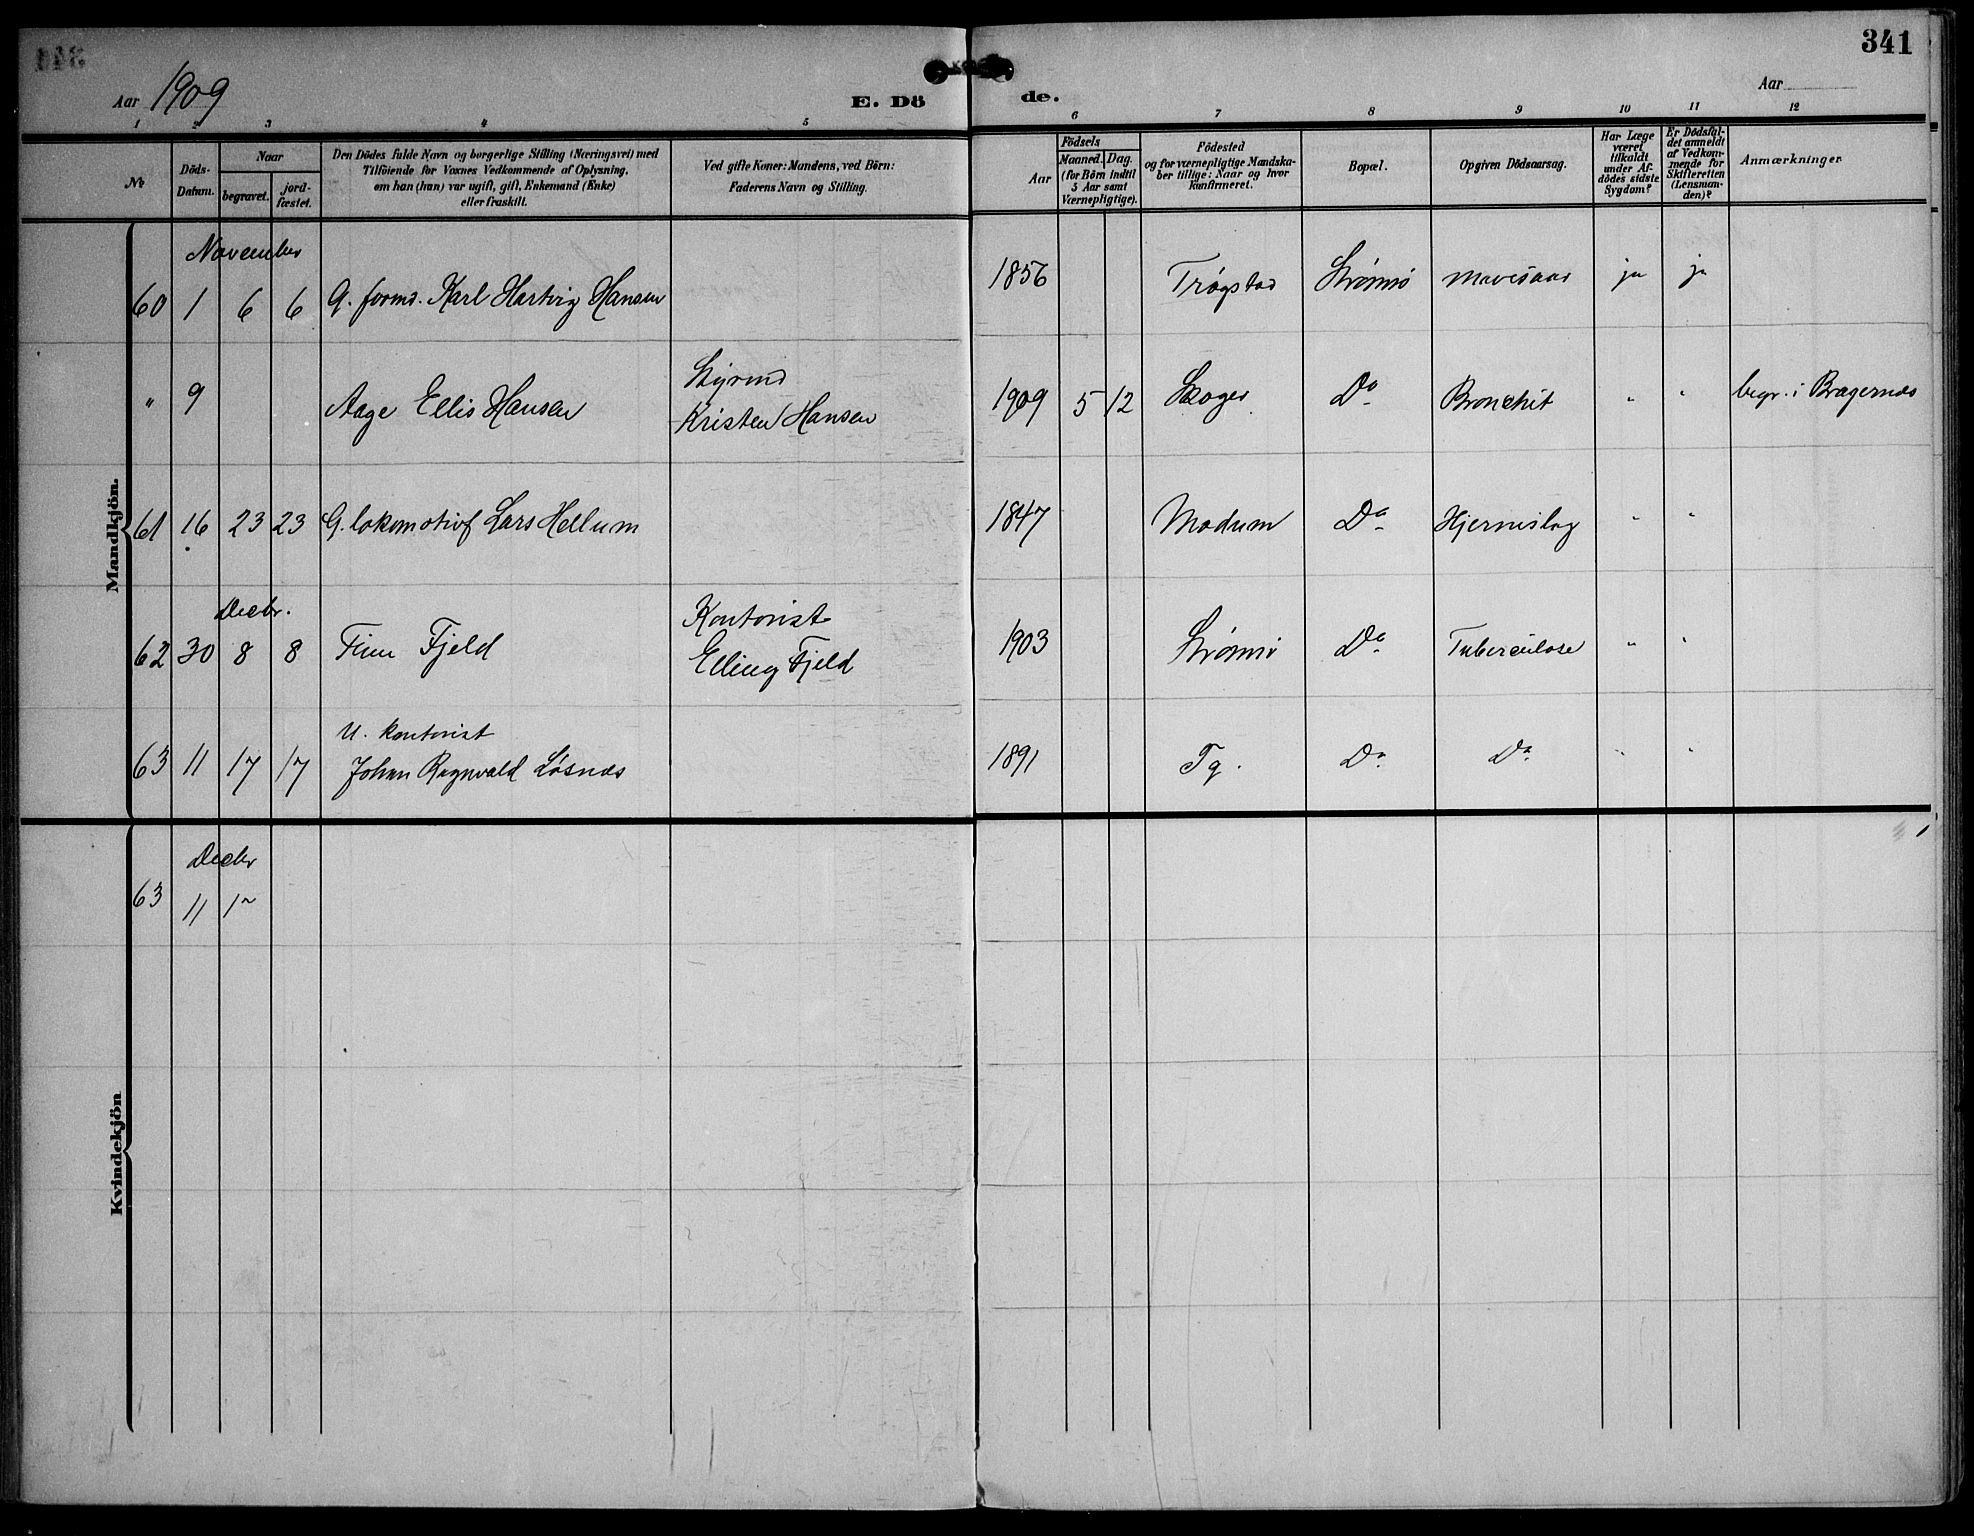 341
Aar 1909
E. Dö de.
Aar
1 2 3 4 5 6 7 8 9 10 11 12
No
Döds-Datum.
Naar
begravet.
jord-fæstet.
Den Dödes fulde Navn og borgerlige Stilling (Næringsvei) med
Tilföiende for Voxnes Vedkommende af Oplysning,
om han (hun) var ugift, gift, Enkemand (Enke)
eller fraskilt.
Ved gifte Koner: Mandens, ved Börn:
Faderens Navn og Stilling.
Aar
Födsels
Maaned. Dag.
(for Börn indtil
5 Aar samt
Værnepligtige).
Födested
og for værnepligtige Mandska-
ber tillige: Naar og hvor
konfirmeret.
Bopæl.
Opgiven Dödsaarsag.
Har Læge
været
tilkaldt
under Af-
dödes sidste
Sygdom?
Er Dödsfal-
det anmeldt
af Vedkom-
mende for
Skifteretten
(Lensman-
den)?
Anmærkninger
Mandkjön.
November
60 1 6 6 G. formd. Karl Hartvig Hansen 1856 Trøgstad Strømsø Mavesaar ja ja
" 9 Aage Ellis Hansen Styrmd Kristen Hansen 1909 5 12 Skoger Do Bronchit " " begr. i Bragernæs
61 16 23 23 G. lokomotivf Lars Hellum 1847 Modum Do Hjerneslag " "
Decbr.
62 30 8 8 Finn Fjeld Kontorist Elling Fjeld 1903 Strømsø Do Tuberculose " "
63 11 17 17 U. kontorist Johan Ragnvald Løsnæs 1891 Tg. Do Do " "
Kvindekjön
Decbr
63 11 17